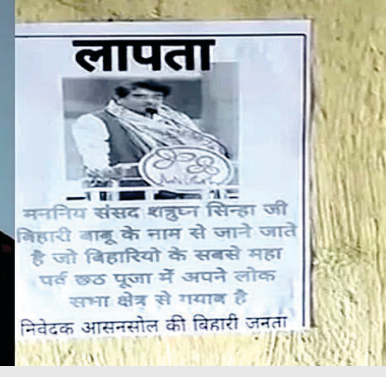 लापता
मननिय संसद शत्रुघ्न सिन्हा जी
बिहारी बाबू के नाम से जाने जाते
है जो बिहारियो के सबसे महा
पर्व छठ पूजा में अपने लोक
सभा क्षेत्र से गयाब है
निवेदक आसनसोल की बिहारी जनता